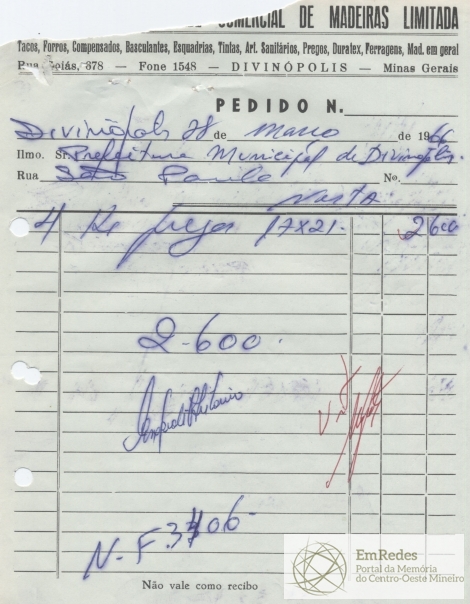 COMERCIAL DE MADEIRAS LIMITADA
Tacos, Forros, Compensados, Basculantes, Esquadrias, Tintas, Art. Sanitários, Pregos, Duratex, Ferragens, Mad. em geral
Rua Goiás, 378 — Fone 1548 — DIVINÓPOLIS — Minas Gerais
PEDIDO N.
Divinópolis 28 de Março de 1966
Ilmo. Sr. Prefeitura Municipal de Divinópolis.
Rua São Paulo No.
Nesta
4 Kg 17X21. 2600
2-600.
N-F. 3706-
Não vale como recibo
EmRedes
Portal da Memória
do Centro-Oeste Mineiro